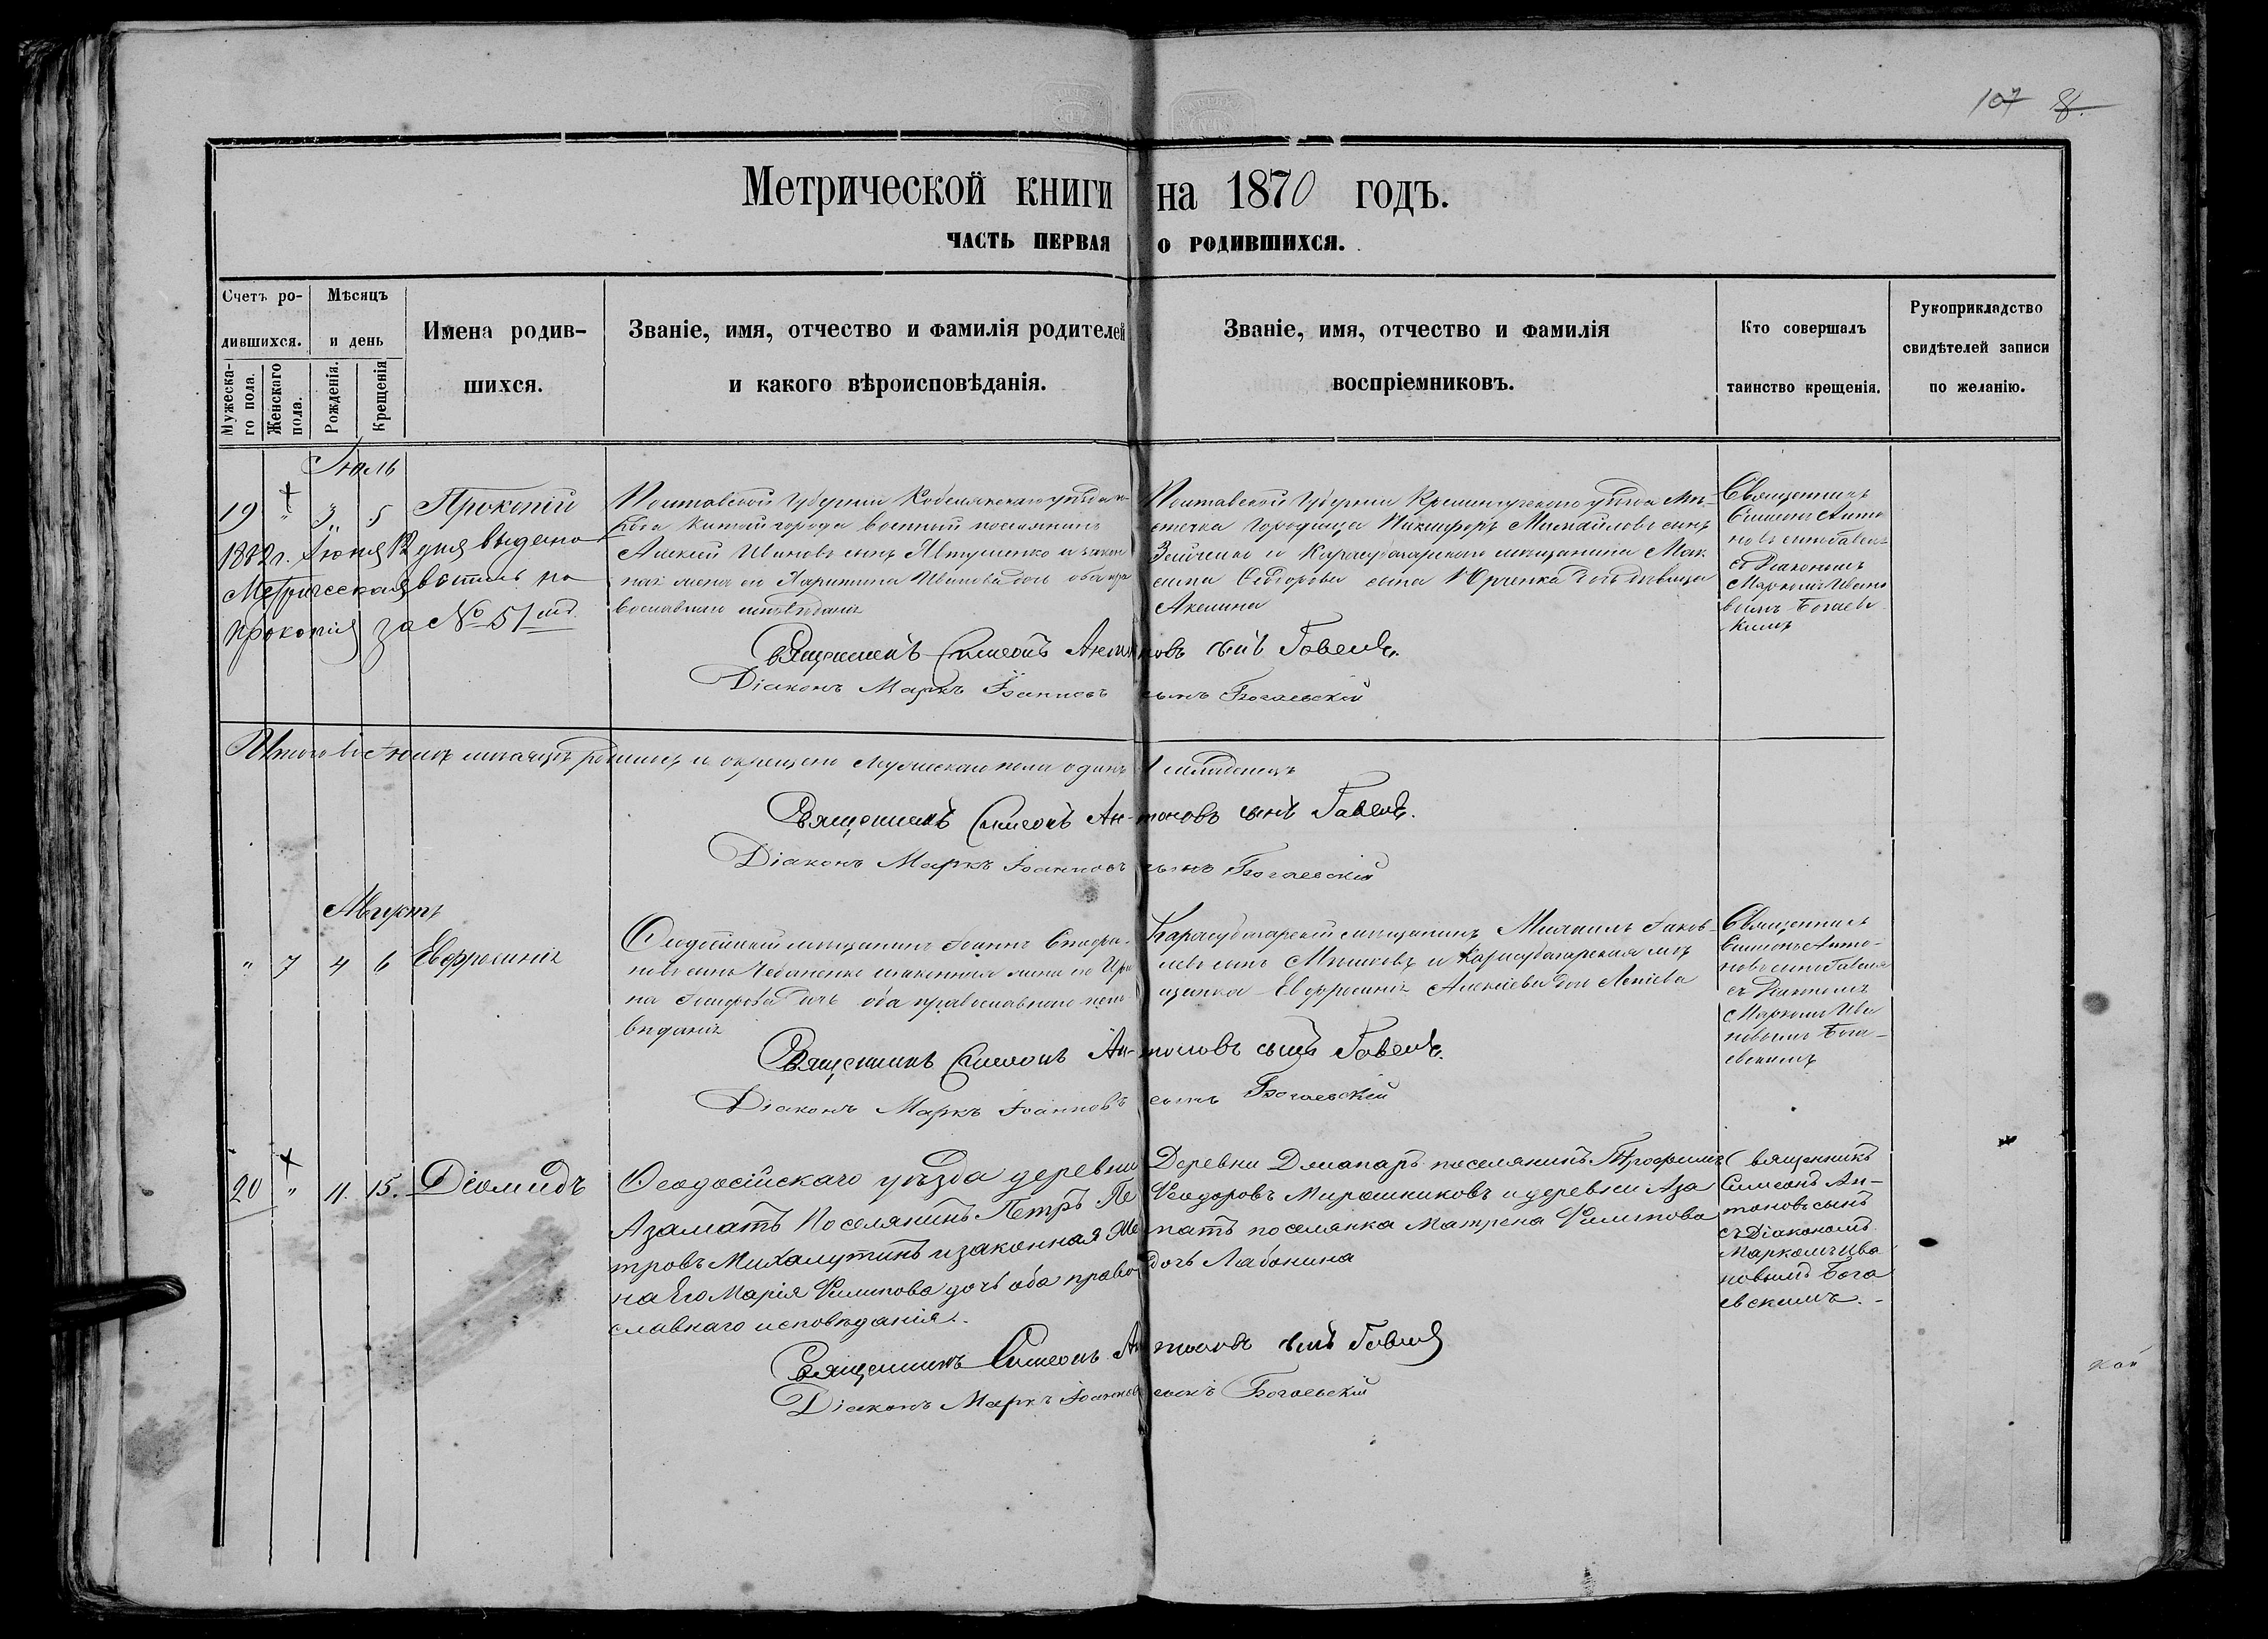 107 8.
Метрической книги на 1870 годъ.
ЧАСТЬ ПЕРВАЯ О РОДИВШИХСЯ.
Счетъ ро-
дившихся.
Мужеска-
го пола.
Женскаго
пола.
Мѣсяцъ
и день
Рожденія.
Крещенія
Имена родив-
шихся.
Званіе, имя, отчество и фамилія родителей
и какого вѣроисповѣданія.
Званіе, имя, отчество и фамилія
воспріемниковъ.
Кто совершалъ
таинство крещенія.
Рукоприкладство
свидѣтелей записи
по желанію.
Іюль
19 " 3 5 Прокопій
1882 г. Іюня 12 дня выдана
Метрическая выпись на
Прокопія за № 51
Полтавской Губерніи Кобелякскаго уѣзда
Китайгорода поселянинъ
Алексій Ивановъ сынъ Явтушенко и закон
ная жена его Ивановна дочь оба пра
вославнаго исповѣданія
Полтавской Губерніи Кременчугскаго уѣзда Мѣ-
стечка Городища Никифоръ Михайловъ сынъ
Зейченко и Карасубазарскаго мещанина Мак
сима Ѳедорова сына Юрченка дочь дѣвица
Акелина
Священникъ
Симеонъ Анто
новъ сынъ Гавель
съ Діакономъ
Маркомъ Ивано
вымъ Богаев
скимъ
Священникъ Симеонъ Антоновъ сынъ Гавель.
Діаконъ Маркъ Іоанновъ сынъ Богаевскій
Итого въ Іюлѣ мѣсяцѣ родилось и окрещено Мужескаго пола одинъ 1 младенецъ
Священникъ Симеонъ Антоновъ сынъ Гавель.
Діаконъ Маркъ Іоанновъ сынъ Богаевскій
Августъ
" 7 4 6 Евфросинія
Ѳеодосійскій мещанинъ Іоаннъ Стефа-
новъ сынъ Чебаненко и законная жена его Ири
на Іосифова дочь оба православнаго испо
вѣданія
Карасубазарскій мещанинъ Михаилъ Іаков-
левъ сынъ Мѣшковъ и Карасубазарская мѣ
щанка Евфросинія Алексіева дочь
Священникъ
Симеонъ Анто-
новъ сынъ Гавель
съ Діакономъ
Маркомъ Ива
новымъ Бога-
евскимъ
Священникъ Симеонъ Антоновъ сынъ Гавель.
Діаконъ Маркъ Іоанновъ сынъ Богаевскій
20 " 11. 15. Діомидъ
Ѳеодосійскаго уѣзда деревни
Азаматъ Поселянинъ Петръ Пе
тровъ Михалутинъ и законная Же
на Его Марія Филипова дочь оба право
славнаго исповѣданія.
Деревни Джапаръ поселянинъ Трофимъ
Ѳеодоровъ Мирошниковъ и деревни Аза
матъ поселянка Матрена Филипова
дочь Лабонина
Священникъ
Симеонъ Ан-
тоновъ сынъ
съ Діакономъ
Маркомъ Ива
новымъ Бога
евскимъ.
Священникъ Симеонъ Антоновъ сынъ Гавель
Діаконъ Маркъ Іоанновъ сынъ Богаевскій